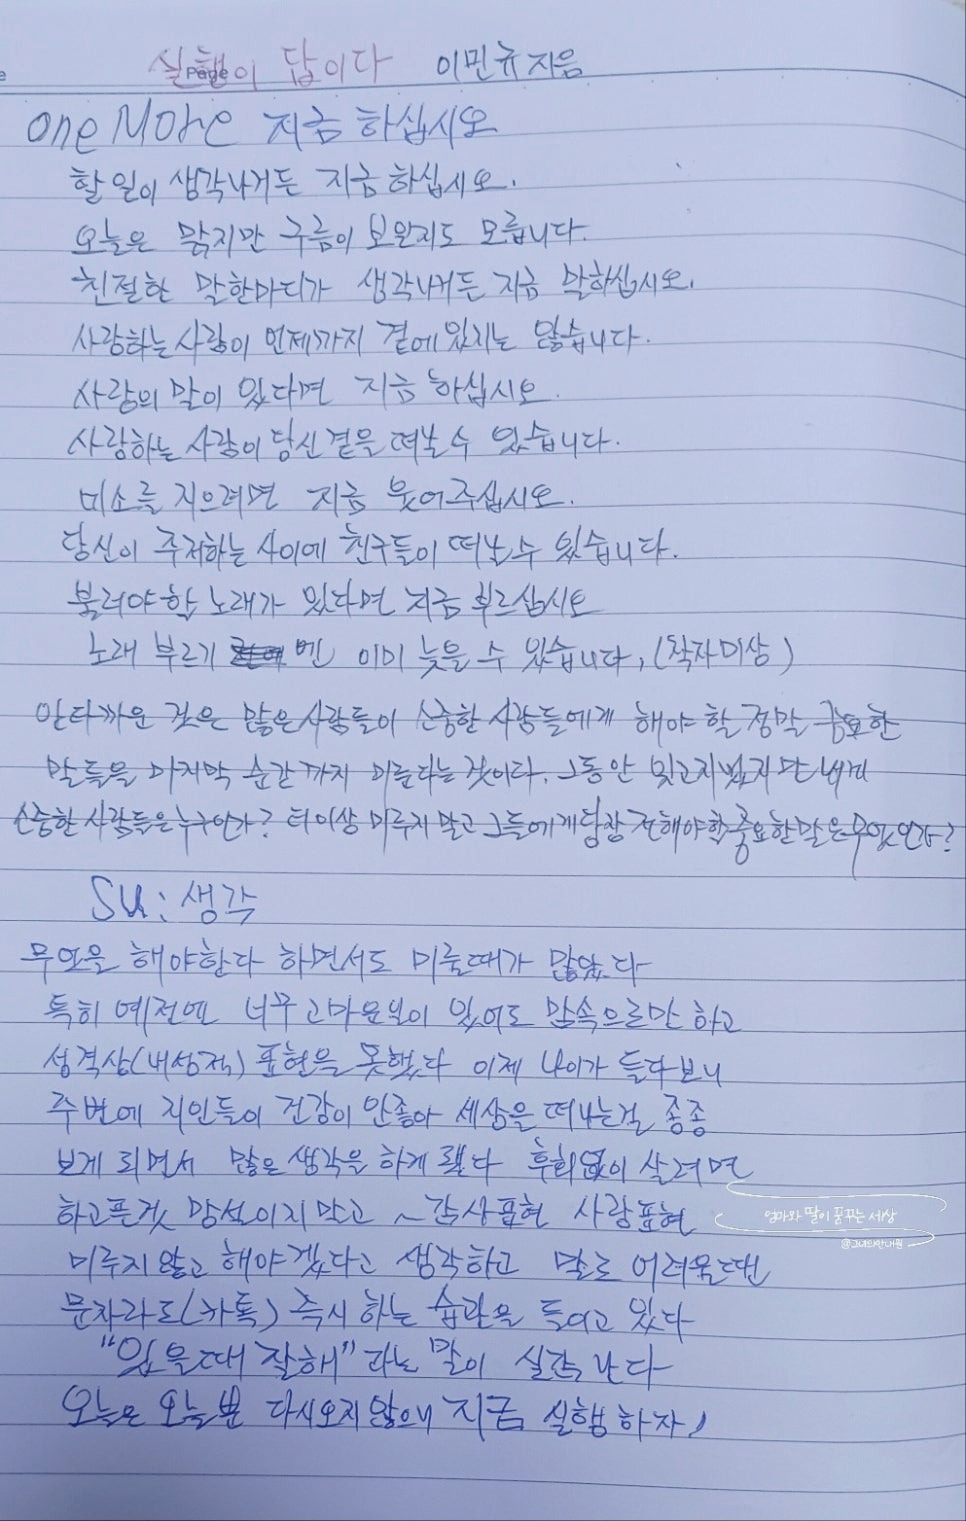 실행이 답이다 이민규 지음
one More 지금 하십시오
할 일이 생각나거든 지금 하십시오.
오늘은 맑지만 구름이 보일지도 모릅니다.
친절한 말한마디가 생각나거든 지금 말하십시오.
사랑하는 사람이 언제까지 곁에 있지는 않습니다.
사랑의 말이 있다면 지금 하십시오.
사랑하는 사람이 당신 곁을 떠날 수 있습니다.
미소를 지으려면 지금 웃어주십시오.
당신이 주저하는 사이에 친구들이 떠날 수 있습니다.
불러야할 노래가 있다면 지금 부르십시오
노래 부르기엔 이미 늦을 수 있습니다. (작자미상)
안타까운 것은 많은 사람들이 소중한 사람들에게 해야 할 정말 중요한
말들을 마지막 순간까지 미룬다는 것이다. 그동안 잊고지냈지만 내게
소중한 사람들은 누구인가? 더이상 미루지 말고 그들에게 당장 전해야할 중요한 말은 무엇인가?
SU: 생각
무언을 해야한다 하면서도 미룰때가 많았다
특히 예전엔 너무 고마운일이 있어도 맘속으로만 하고
성격상(내성적) 표현을 못했다 이제 나이가 들다보니
주변에 지인들이 건강이 안좋아 세상을 떠나는걸 종종
보게 되면서 많은 생각을 하게 됐다 후회없이 살려면
하고픈것 망설이지 말고 ~ 감사표현 사랑표현
미루지 않고 해야겠다고 생각하고 말로 어려울땐
문자라도(카톡) 즉시 하는 습관을 들이고 있다
"있을때 잘해" 라는 말이 실감 난다
오늘은 오늘뿐 다시오지 않으니 지금 실행 하자!
엄마와 딸이 꿈꾸는 세상